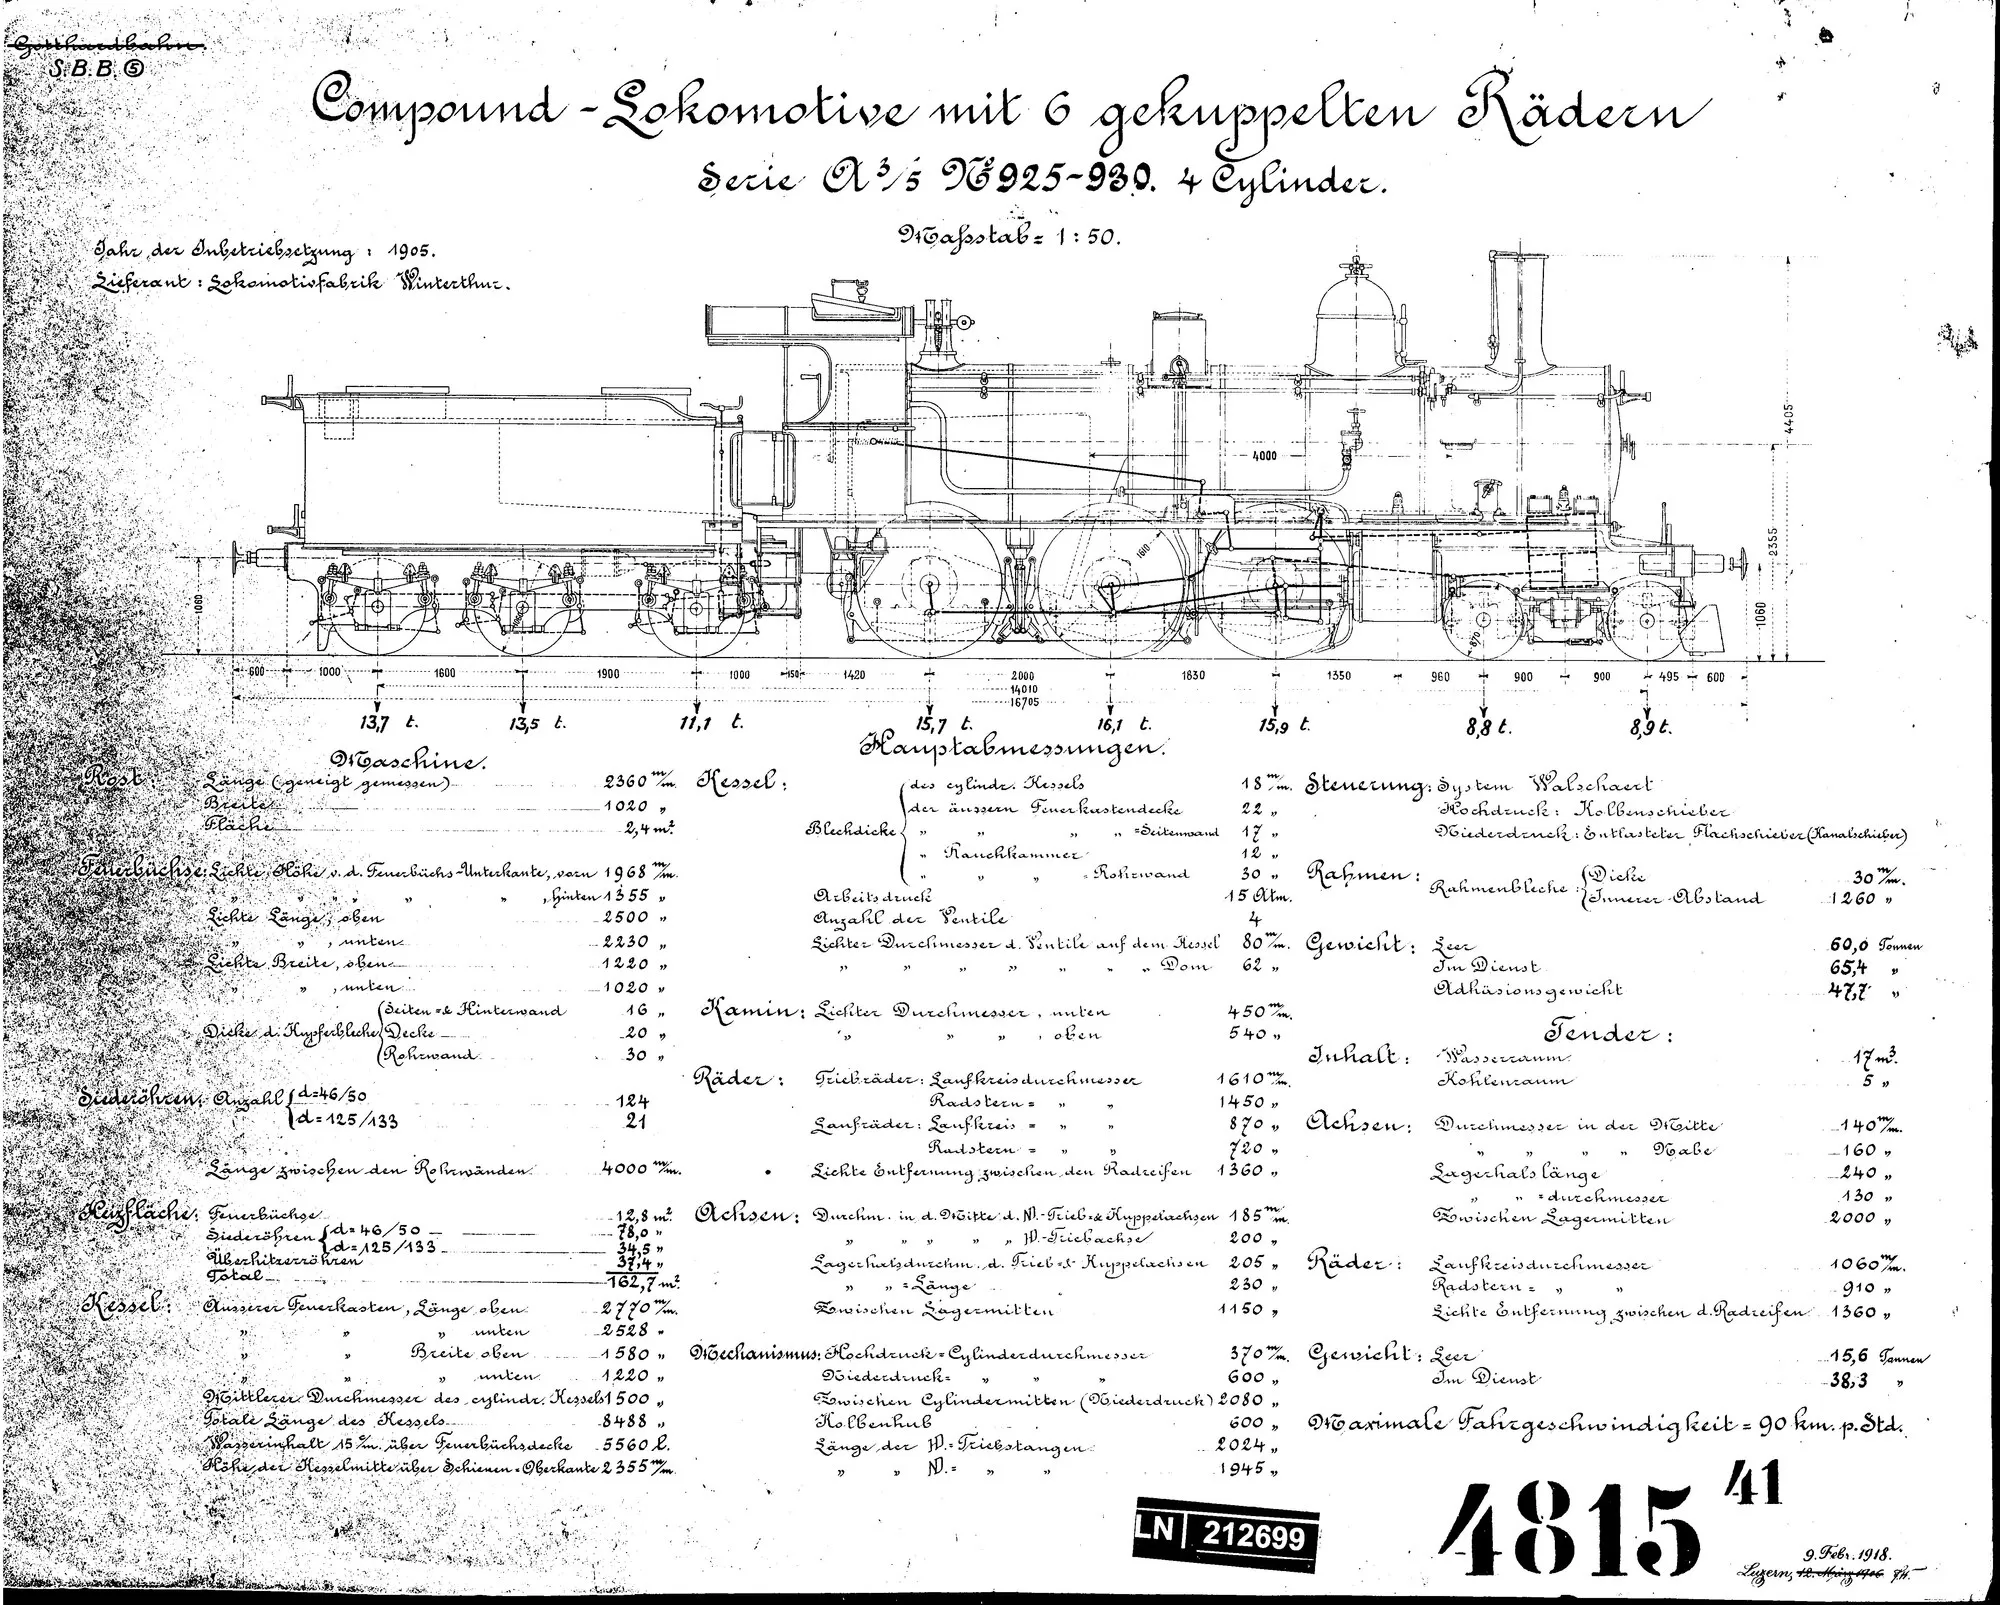 Gotthardbahn
S.B.B. ⑤
Compound-Lokomotive mit 6 gekuppelten Rädern
Serie A 3/5 No 925-930. 4 Cylinder.
Maſsstab = 1:50.
Jahr der Inbetriebsetzung : 1905.
Lieferant : Lokomotivfabrik Winterthur.
4000
4405
2355
1060
1000
1610
870
600 1000 1600 1900 1000 150 1420 2000 1830 1350 960 900 900 495 600
14010
16705
13,7 t. 13,5 t. 11,1 t. 15,7 t. 16,1 t. 15,9 t. 8,8 t. 8,9 t.
Hauptabmessungen.
Maschine.
Rost: Länge (geneigt gemessen) 2360 m/m.
Breite 1020 „
Fläche 2,4 m².
Feuerbüchse: Lichte Höhe v. d. Feuerbüchs-Unterkante, vorn 1968 m/m.
„ „ „ „ „ , hinten 1355 „
Lichte Länge, oben 2500 „
„ „ , unten 2230 „
Lichte Breite, oben 1220 „
„ „ , unten 1020 „
Dicke d. Kupferbleche Seiten- & Hinterwand 16 „
Decke 20 „
Rohrwand 30 „
Siederöhren: Anzahl d=46/50 124
d=125/133 21
Länge zwischen den Rohrwänden 4000 m/m.
Heizfläche: Feuerbüchse 12,8 m²
Siederöhren d=46/50 78,0 „
d=125/133 34,5 „
Überhitzerröhren 37,4 „
Total 162,7 m²
Kessel: Äusserer Feuerkasten, Länge oben 2770 m/m.
„ „ „ unten 2528 „
„ „ Breite oben 1580 „
„ „ „ unten 1220 „
Mittlerer Durchmesser des cylindr. Kessels 1500 „
Totale Länge des Kessels 8488 „
Wasserinhalt 15 c/m. über Feuerbüchsdecke 5560 l.
Höhe der Kesselmitte über Schienen-Oberkante 2355 m/m.
Kessel: Blechdicke des cylindr. Kessels 18 m/m.
der äussern Feuerkastendecke 22 „
„ „ „ „ -Seitenwand 17 „
„ Rauchkammer 12 „
„ „ -Rohrwand 30 „
Arbeitsdruck 15 Atm.
Anzahl der Ventile 4
Lichter Durchmesser d. Ventile auf dem Kessel 80 m/m.
„ „ „ „ „ „ Dom 62 „
Kamin: Lichter Durchmesser, unten 450 m/m.
„ „ , oben 540 „
Räder: Triebräder: Laufkreisdurchmesser 1610 m/m.
Radstern = „ „ 1450 „
Laufräder: Laufkreis = „ „ 870 „
Radstern = „ „ 720 „
Lichte Entfernung zwischen den Radreifen 1360 „
Achsen: Durchm. in d. Mitte d. N.-Trieb & Kuppelachsen 185 m/m.
„ „ „ „ „ H.-Triebachse 200 „
Lagerhalsdurchm. d. Trieb- & Kuppelachsen 205 „
„ „ = Länge 230 „
Zwischen Lagermitten 1150 „
Mechanismus: Hochdruck = Cylinderdurchmesser 370 m/m.
Niederdruck = „ „ 600 „
Zwischen Cylindermitten (Niederdruck) 2080 „
Kolbenhub 600 „
Länge der H.-Triebstangen 2024 „
„ „ N.= „ „ 1945 „
Steuerung: System Walschaert
Hochdruck: Kolbenschieber
Niederdruck: Entlasteter Flachschieber (Kanalschieber)
Rahmen: Rahmenbleche: Dicke 30 m/m.
Innerer Abstand 1260 „
Gewicht: Leer 60,0 Tonnen
Im Dienst 65,4 „
Adhäsionsgewicht 47,7 „
Tender:
Inhalt: Wasserraum 17 m³.
Kohlenraum 5 „
Achsen: Durchmesser in der Mitte 140 m/m.
„ „ „ Nabe 160 „
Lagerhalslänge 240 „
„ = durchmesser 130 „
Zwischen Lagermitten 2000 „
Räder: Laufkreisdurchmesser 1060 m/m.
Radstern = „ „ 910 „
Lichte Entfernung zwischen d. Radreifen 1360 „
Gewicht: Leer 15,6 Tonnen
Im Dienst 38,3 „
Maximale Fahrgeschwindigkeit = 90 km. p. Std.
LN 212699
4815 41
9. Febr. 1918.
Luzern, 12. März 1906